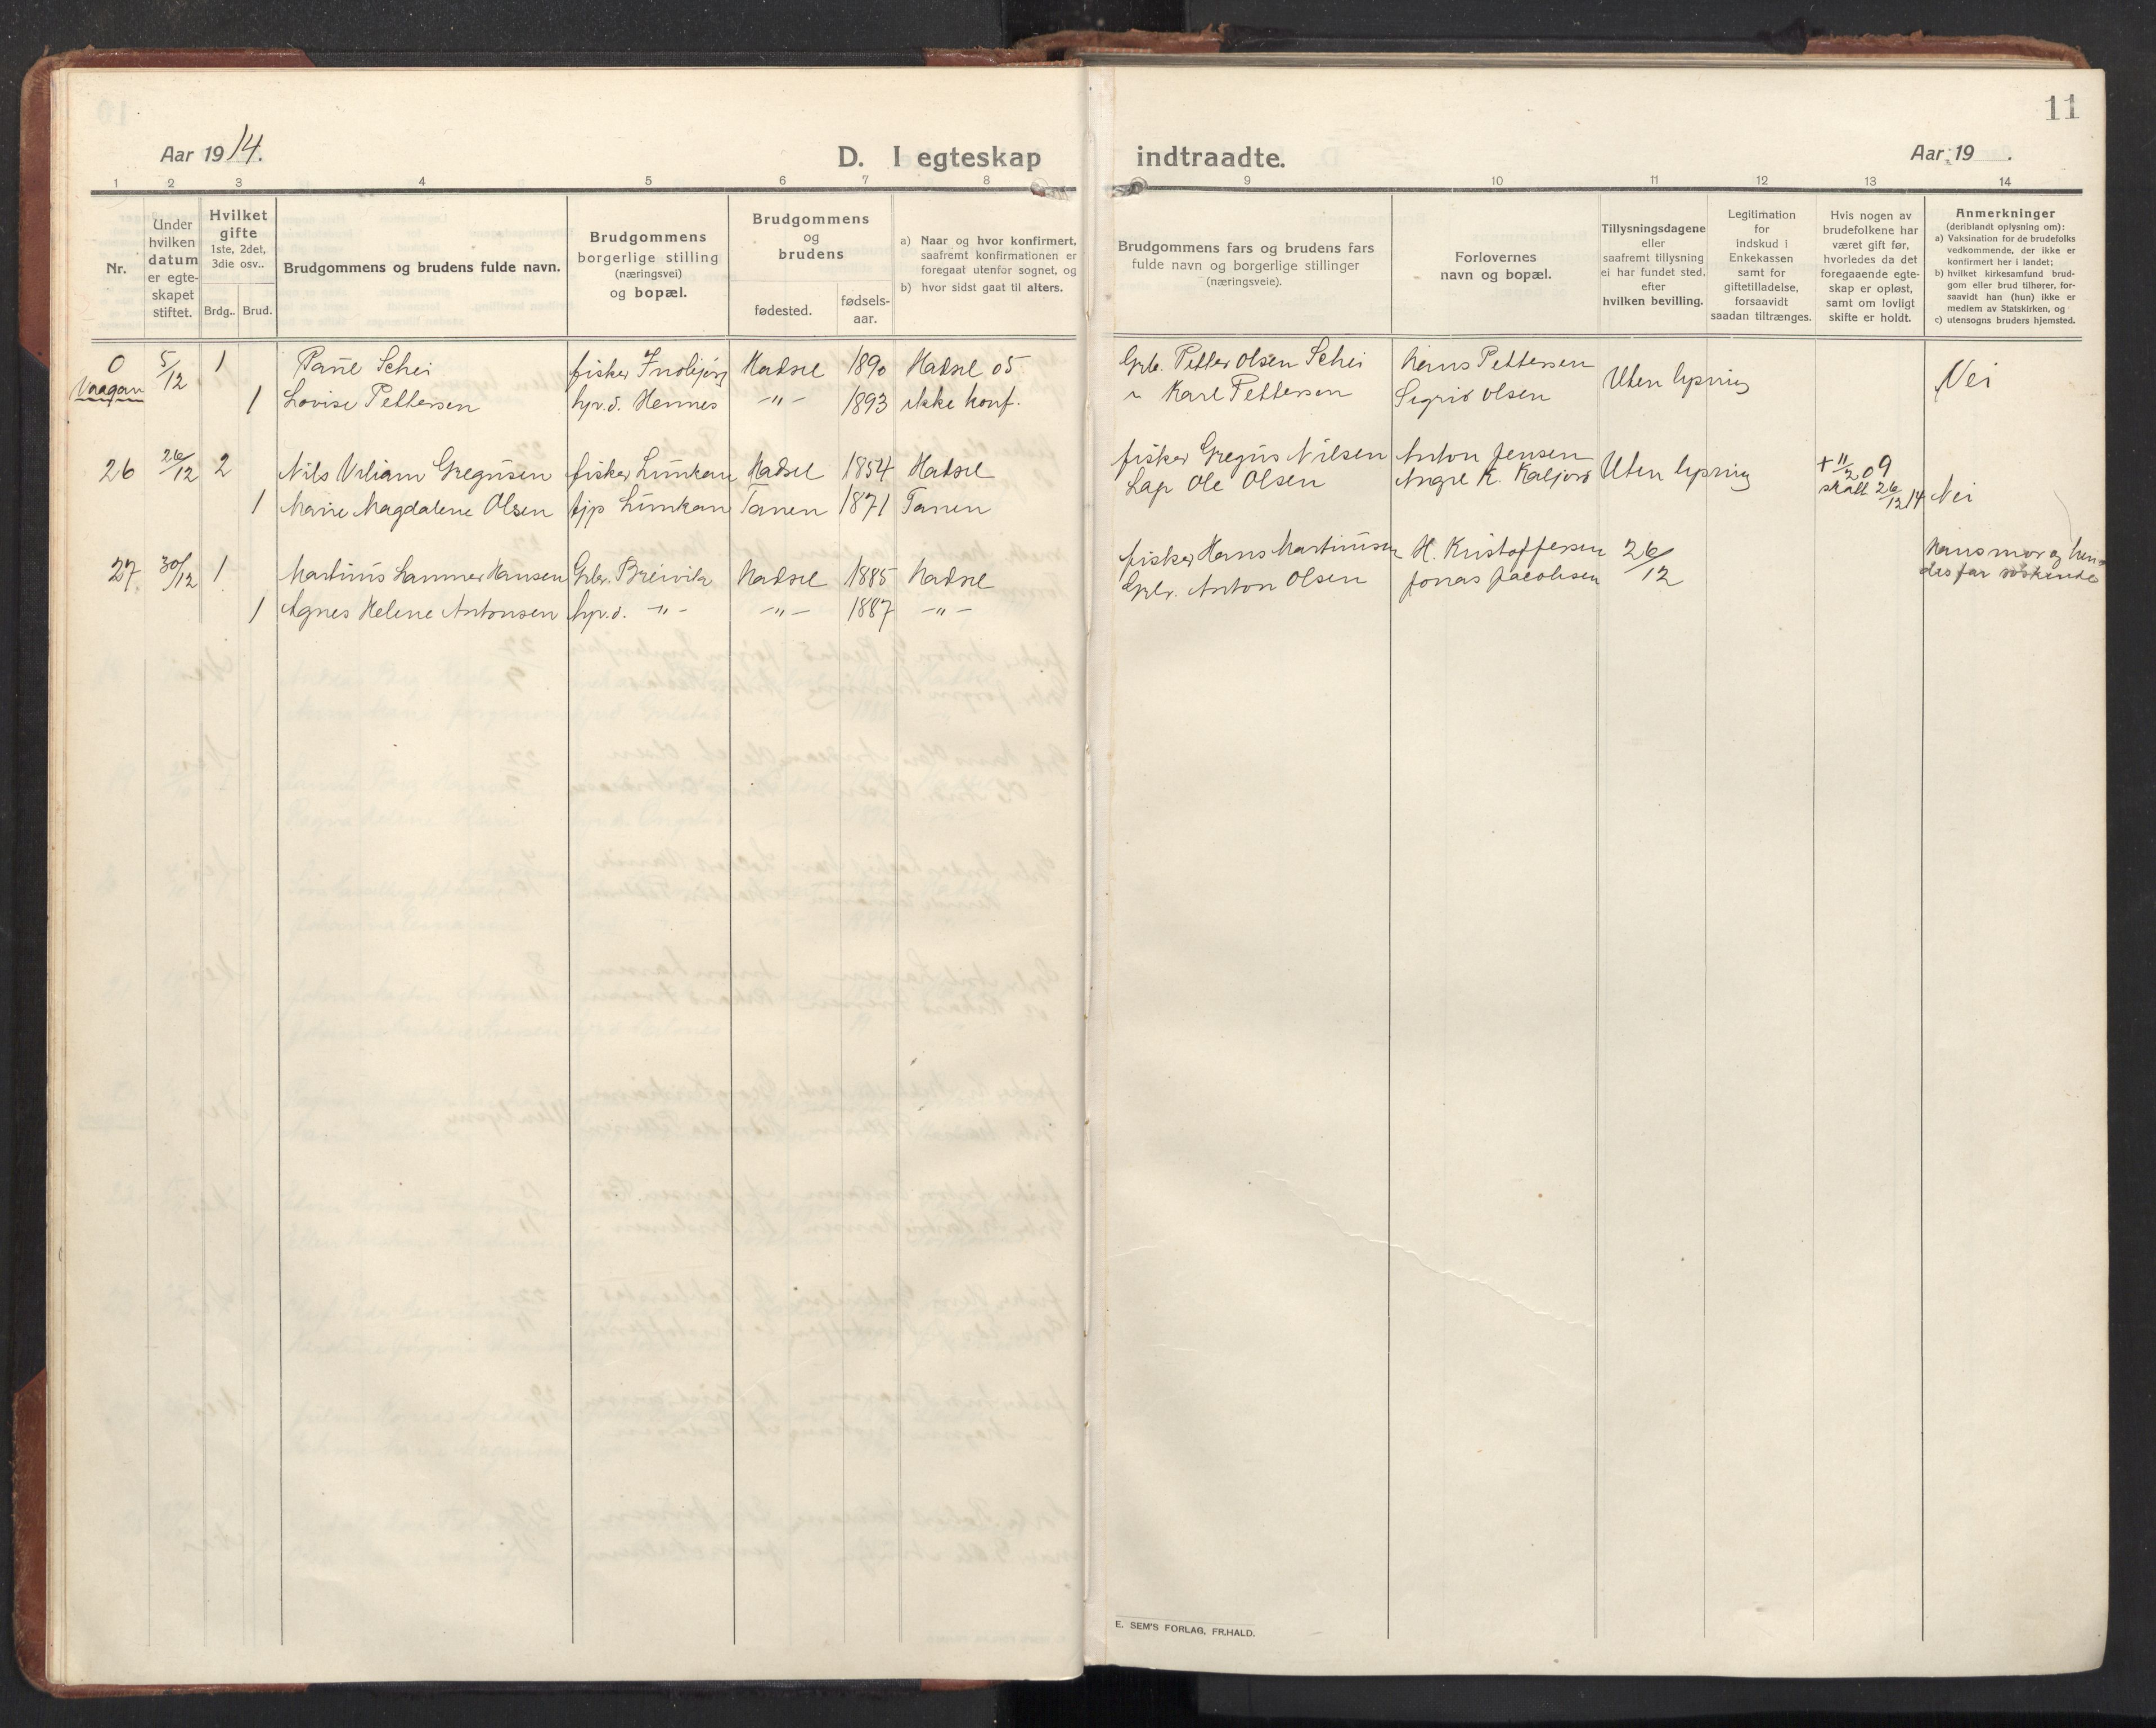 11
Aar 1914.
D. I egteskap indtraadte.
Aar 19 .
1 2 3 4 5 6 7 8 9 10 11 12 13 14
Nr.
Under
hvilken
datum
er egte-
skapet
stiftet.
Hvilket
gifte
1ste, 2det,
3die osv..
Brdg.. Brud.
Brudgommens og brudens fulde navn.
Brudgommens
borgerlige stilling
(næringsvei)
og bopæl.
Brudgommens
og
brudens
fødested.
fødsels-
aar.
a) Naar og hvor konfirmert,
saafremt konfirmationen er
foregaat utenfor sognet, og
b) hvor sidst gaat til alters.
Brudgommens fars og brudens fars
fulde navn og borgerlige stillinger
(næringsveie).
Forlovernes
navn og bopæl.
Tillysningsdagene
eller
saafremt tillysning
ei har fundet sted,
efter
hvilken bevilling.
Legitimation
for
indskud i
Enkekassen
samt for
giftetilladelse,
forsaavidt
saadan tiltrænges.
Hvis nogen av
brudefolkene har
været gift før,
hvorledes da det
foregaaende egte-
skap er opløst,
samt om lovligt
skifte er holdt.
Anmerkninger
(deriblandt oplysning om):
a) Vaksination for de brudefolks
vedkommende, der ikke er
konfirmert her i landet;
b) hvilket kirkesamfund brud-
gom eller brud tilhører, for-
saavidt han (hun) ikke er
medlem av Statskirken, og
c) utensogns bruders hjemsted.
0 5/12 1 Schei fisker Hadsel 1890 Hadsel 05 Grb. Petter Olsen Schei Hans Pettersen
Vaagan 1 Lovise Pettersen hp.d. Hennes -"- 1893 ikke konf. " Karl Pettersen Sigrid Olsen Uten lysning Nei
26 26/12 2 Nils Viliam Gregusen fisker Lunkan Hadsel 1854 Hadsel fisker Gregus Nilsen Anton Jensen Uten lysning + 11/2 09
1 Marie Magdalene Olsen Lunkan Tanen 1871 Tanen Lap Ole Olsen K. skilt 26/12 14 Nei
27 30/12 1 Martinus Hammer Hansen Grbr. Breivik Hadsel 1885 Hadsel fisker Hans Martinusen H. Kristoffersen 26/12 Hans mor og hen-
1 Agnes Helene Antonsen hp.d. -"- -"- 1887 -"- Grbr. Anton Olsen Jonas Jacobsen des far söskende
E. SEM'S FORLAG, FR.HALD.